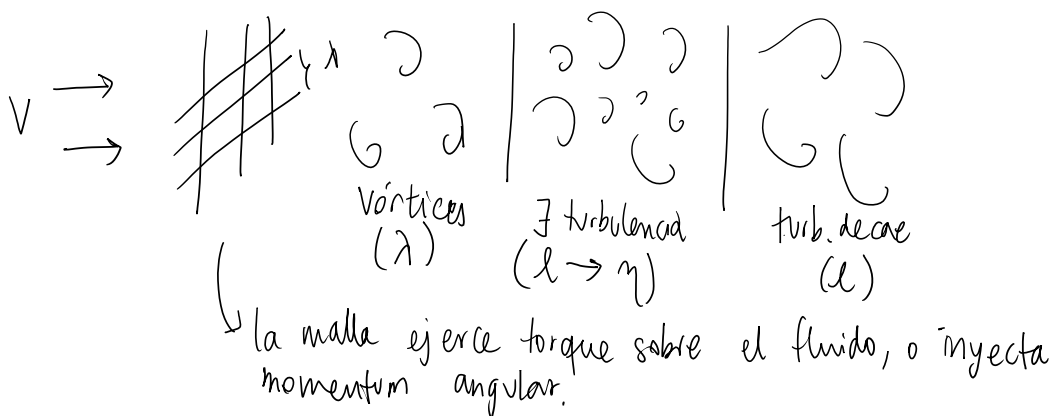 V
λ
vórtices
(λ)
∃ turbulencia
(l → η)
turb. decae
(l)
la malla ejerce torque sobre el fluido, o inyecta
momentum angular.